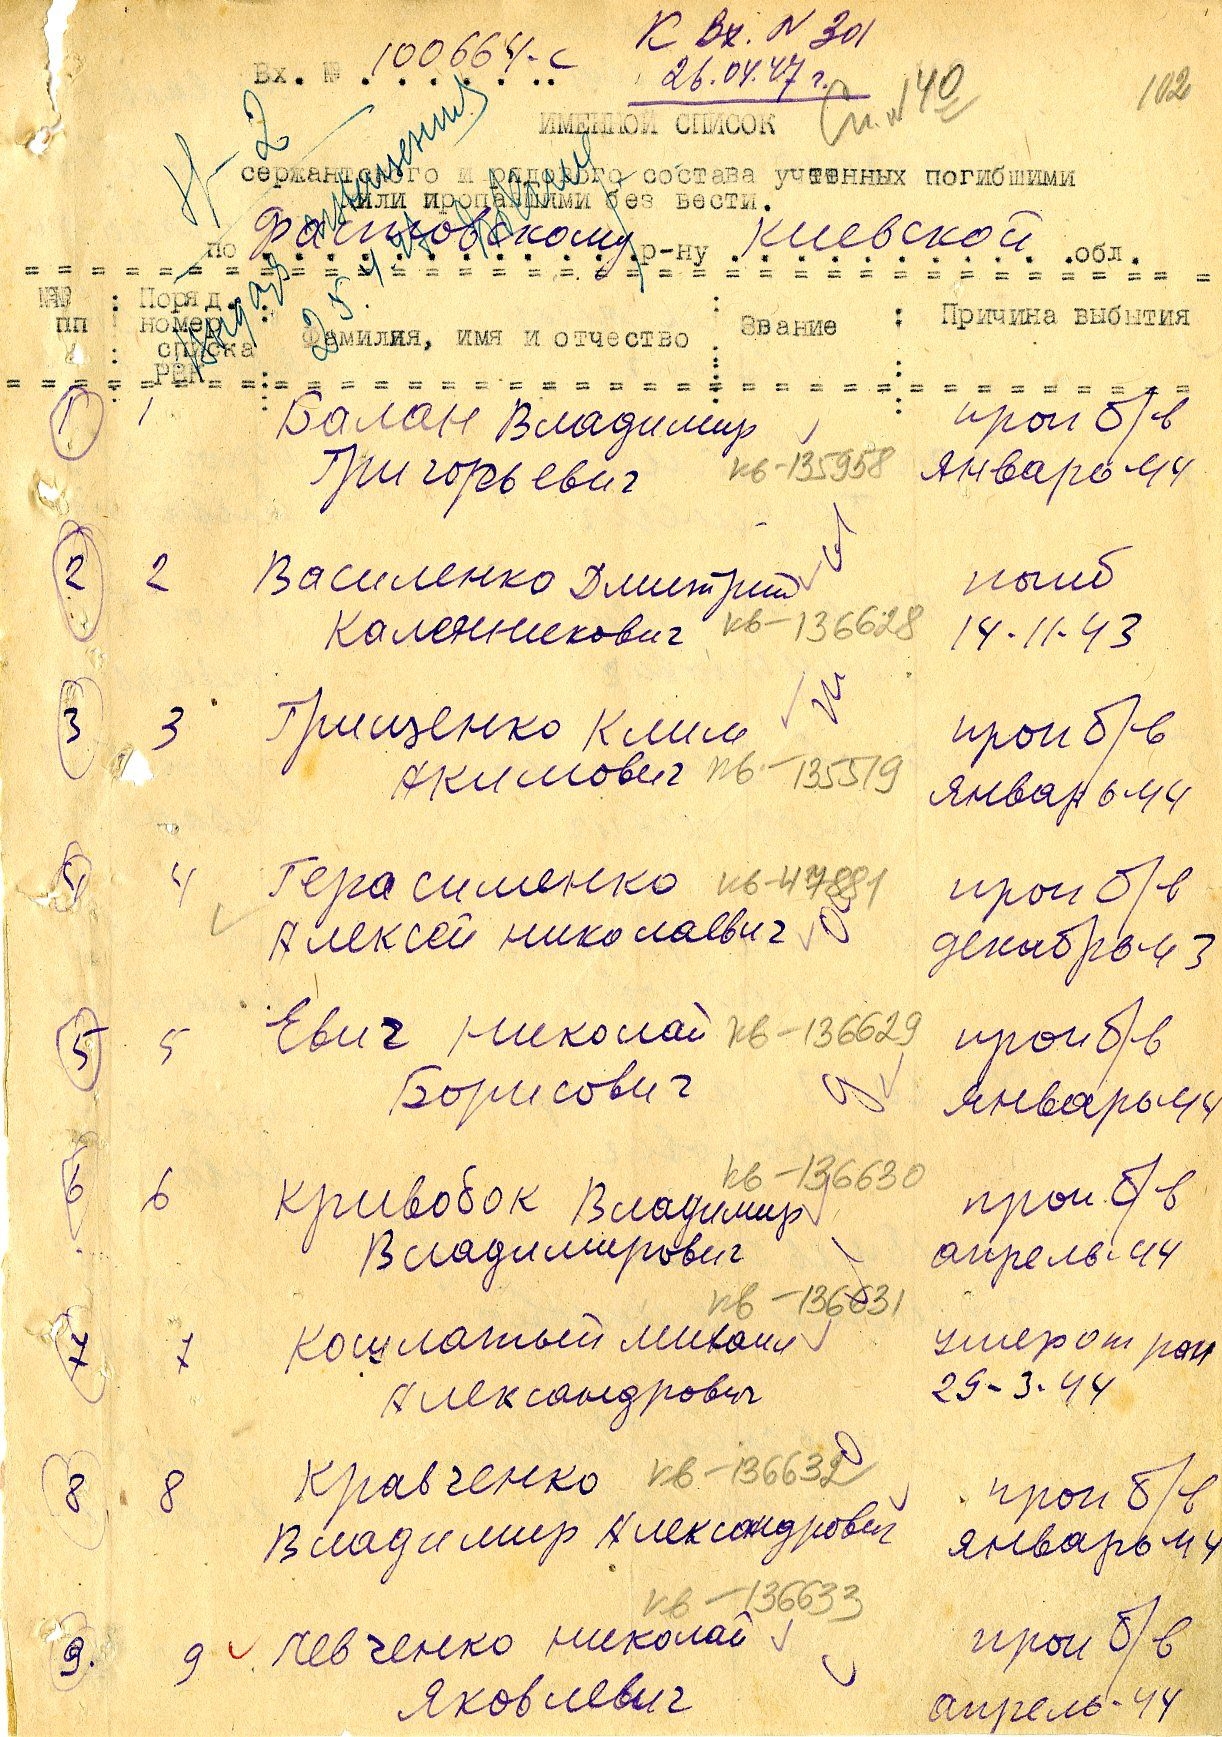 К Вх. N 301
Вх. № 100664-с
26.04.47 г.
Сп. N 40
102
ИМЕННОЙ СПИСОК
Н-2
сержантского и рядового состава учтенных погибшими
или пропавшими без вести.
по Фастовскому р-ну Киевской обл.
25.4.47
№№ пп : Поряд. номер списка РВК : Фамилия, имя и отчество : Звание : Причина выбытия
1 1 Балан Владимир проп б/в
Григорьевич кв-135958 январь 44
2 2 Василенко Дмитрий погиб
Каленникович кв-136628 14-11-43
3 3 Грищенко Клим проп б/в
Акимович кв-135519 январь 44
4 4 Герасименко кв-47881 проп б/в
Алексей Николаевич декабрь 43
5 5 Евич Николай кв-136629 проп б/в
Борисович январь 44
кв-136630
6 6 Кривобок Владимир проп б/в
Владимирович апрель-44
кв-136631
7 7 Кошлатый Михаил умер от ран
Александрович 29-3-44
8 8 Кравченко кв-136632 проп б/в
Владимир Александрович январь 44
кв-136633
9. 9 Левченко Николай проп б/в
Яковлевич апрель-44